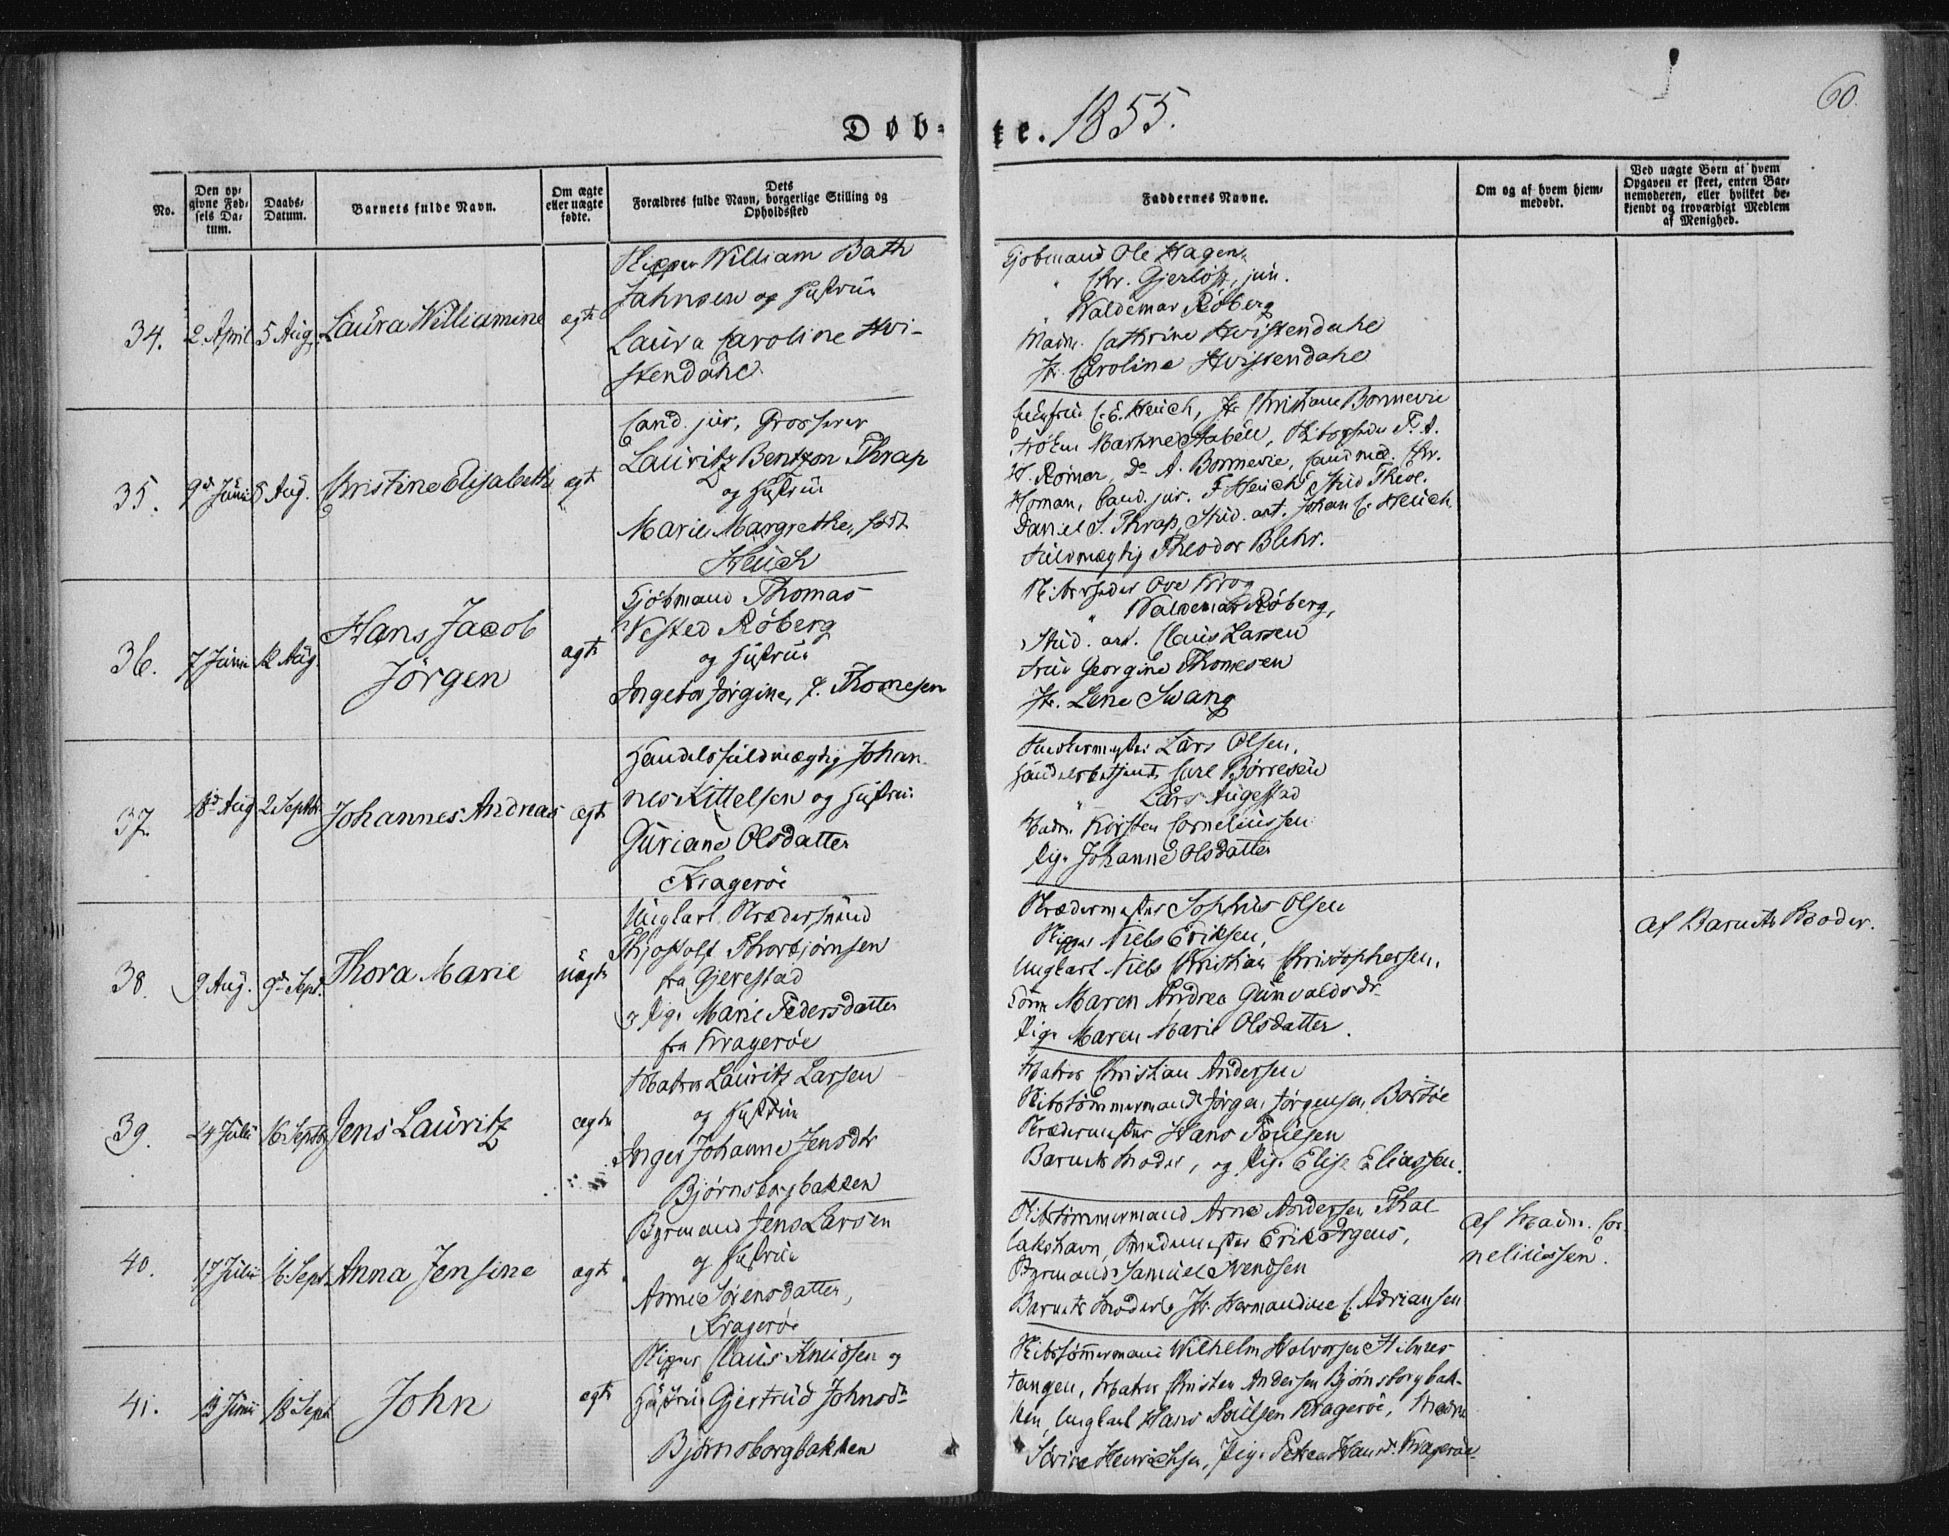 Døb-te. 1855.
60.
No.
Den op-
givne Fød-
sels Da-
tum.
Daabs-
Datum.
Barnets fulde Navn.
Om ægte
eller uægte
fødte.
Dets
Forældres fulde Navn, borgerlige Stilling og
Opholdssted
Faddernes Navne.
Om og af hvem hjem-
medøbt.
Ved uægte Børn af hvem
Opgaven er skeet, enten Bar-
nemoderen, eller hvilket be-
kjendt og troværdigt Medlem
af Menighed.
34.
2 April
5 Aug.
Laura Williamine
ægte
Skipper William Bath
Jahnsen og Hustrue
Laura Caroline Hvi-
stendahl
Kjøbmand Ole Hagen,
" Chr. Gjerløff, jun.
" Waldemar Røberg
Madm. Cathrine Hvistendahl
Jfr. Caroline Hvistendahl
35.
9de Juni
8 Aug.
Christine Elisabeth
ægte
Cand. jur. Grosserer
Lauritz Bentzon Thrap
og Hustrue
Marie Margrethe, født
Heuch
C. E. Heuch, Jfr. Christiane Bonnevie
Frøken Marine Stabell, Skibsreder F. A.
H. Rømer, Do A. Bonnevie, Cand. med. Chr.
Homan, Cand. jur. F. Heuch, Stud. Theol.
Daniel S. Thrap, Stud. art. Johan C. Heuch
Fuldmægtig Theodor Blehr.
36.
7 Juni
12 Aug.
Hans Jacob
Jörgen
ægte
Kjøbmand Thomas
Vested Røberg
og Hustrue
Ingebor Jørgine, f. Thomesen
Skibsreder Ove Krog
" Waldemar Røberg,
Stud. art. Claus Larsen
Frue Georgine Thomesen
Jfr. Lene Swang
37.
18de Aug
2 Septbr
Johannes Andreas
ægte
Handelsfuldmægtig Johan-
nes Kittelsen og Hustrue
Guriane Olsdatter
Kragerøe
Lars Olsen,
Handelsbetjent Carl Børresen
" Lars Augestad
Madm. Kirsten Corneliussen
Pige Johanne Olsdatter
38.
9 Aug.
9de Sept.
Thora Marie
uægte
Ungkarl Skrædersvend
Thjostolf Thorbjørnsen
fra Gjerestad
og Pige Marie Pedersdatter
fra Kragerøe
Skrædermester Sophus Olsen
Skipper Niels Eriksen,
Ungkarl Niels Christian Christophersen,
Maren Andrea Gunvaldsdr
Pige Maren Marie Olsdatter.
af Barnets Moder.
39.
24 Juli
16 Septbr
Jens Lauritz
ægte
Matros Lauritz Larsen
og Hustrue
Inger Johanne Jensdtr
Björnsborgbakken
Matros Christian Andersen
Skibstømmermand Jørgen Jørgensen Barsøe
Skrædermester Hans Poulsen
Barnets Moder, og Pige Elise Eliassen.
40.
17 Juli
16 Sept.
Anna Jensine
ægte
Byrmand Jens Larsen
og Hustrue
Anne Sörensdatter,
Kragerøe
Skibstømmermand Arne Andersen Thal
lakshavn, Smedmester Erik Örgens,
Byrmand Samuel Svendsen
Barnets Moder & Jfr. Hermandine C. Adriansen
af Madm. Cor-
neliussen.
41.
13 Juni
18 Sept
John
ægte
Skipper Claus Knudsen og
Hustrue Gjertrud Johnsdr
Björnsborgbakken
Skibstømmermand Wilhelm Halvorsen Helnæs-
tangen, Matros Christen Andersen Bjørnsborgbak-
ken, Ungkarl Hans Poulsen Kragerøe, Madm
Sørine Henrichsen, Pige Petrea Hansdr. Kragerøe